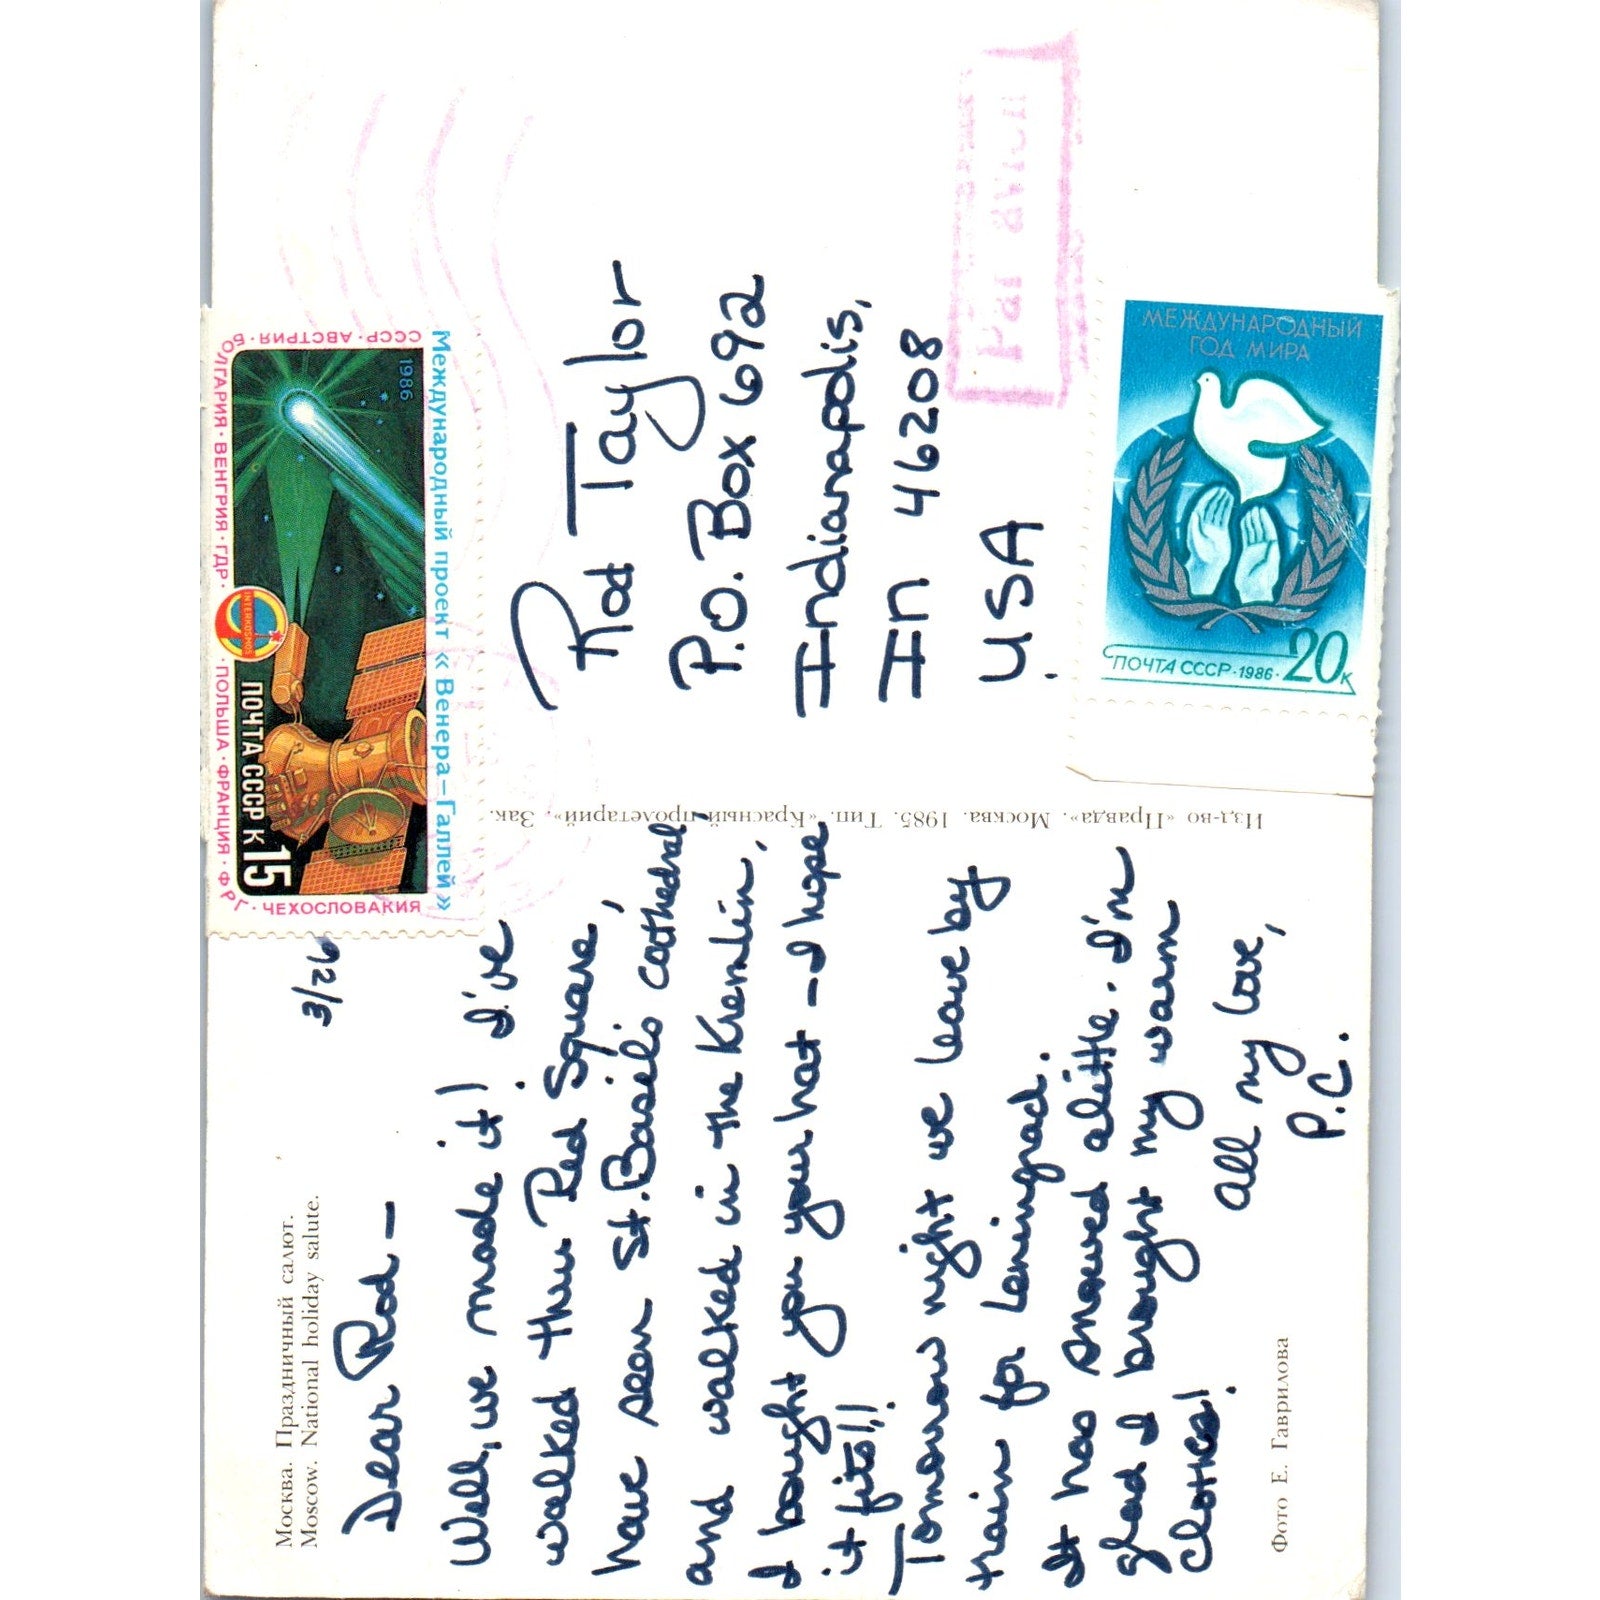 Москва. Праздничный салют.
Moscow. National holiday salute.
3/26
Dear Rod –
Well, we made it! I've
walked thru Red Square,
have seen St. Basil's cathedral,
and walked in the Kremlin.
I bought you your hat – I hope
it fits!!!
Tomorrow night we leave by
train for Leningrad.
It has snowed a little. I'm
glad I brought my warm
clothes!
All my love,
P.C.
Фото Е. Гаврилова
Изд-во «Правда». Москва. 1985. Тип. «Красный пролетарий». Зак.
СССР·АВСТРИЯ·БОЛГАРИЯ·ВЕНГРИЯ·ГДР·
·ПОЛЬША·ФРАНЦИЯ·ФРГ·ЧЕХОСЛОВАКИЯ
1986
INTERKOSMOS
ПОЧТА СССР К 15
Международный проект «Венера–Галлей»
Rod Taylor
P.O. Box 692
Indianapolis,
IN 46208
USA
Par avion
МЕЖДУНАРОДНЫЙ
ГОД МИРА
ПОЧТА СССР·1986·20к